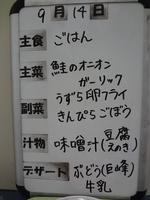 9月14日
主食 ごはん
主菜 鮭のオニオン
ガーリック
副菜 うずら卵フライ
きんぴらごぼう
汁物 味噌汁(豆腐
えのき)
デザート ぶどう(巨峰)
牛乳